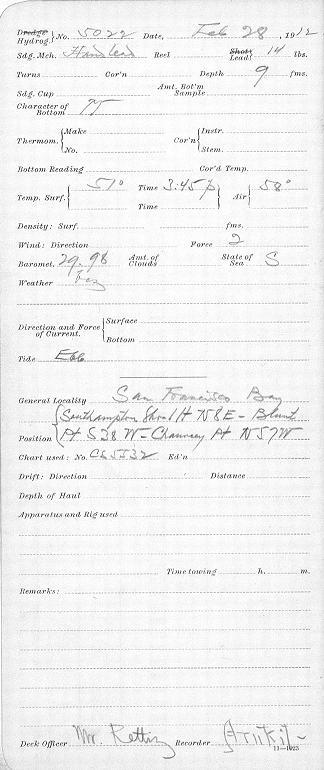 Dredge
Hydrog. } No. 5022 Date, Feb 28, 1912
Sdg. Mch. Handlead Reel Shot Lead 14 lbs.
Turns Cor'n Depth 9 fms.
Sdg. Cup Amt. Bot'm Sample
Character of Bottom
Thermom. { Make Cor'n { Instr.
No. Stem.
Bottom Reading Cor'd Temp.
Temp. Surf. { 57° Time 3:45 p } Air { 58°
Time
Density: Surf. fms.
Wind: Direction Force 2
Baromet. 29.98 Amt. of Clouds State of Sea S
Weather Fog
Direction and Force of Current. { Surface
Bottom
Tide Ebb
General Locality San Francisco Bay
Position { Southampton Shoal H N8E - Blunt
Pt S38W - Chauncey Pt N57W
Chart used: No. CS5532 Ed'n
Drift: Direction Distance
Depth of Haul
Apparatus and Rig used
Time towing h. m.
Remarks:
Deck Officer Mr. Recorder
11-1023